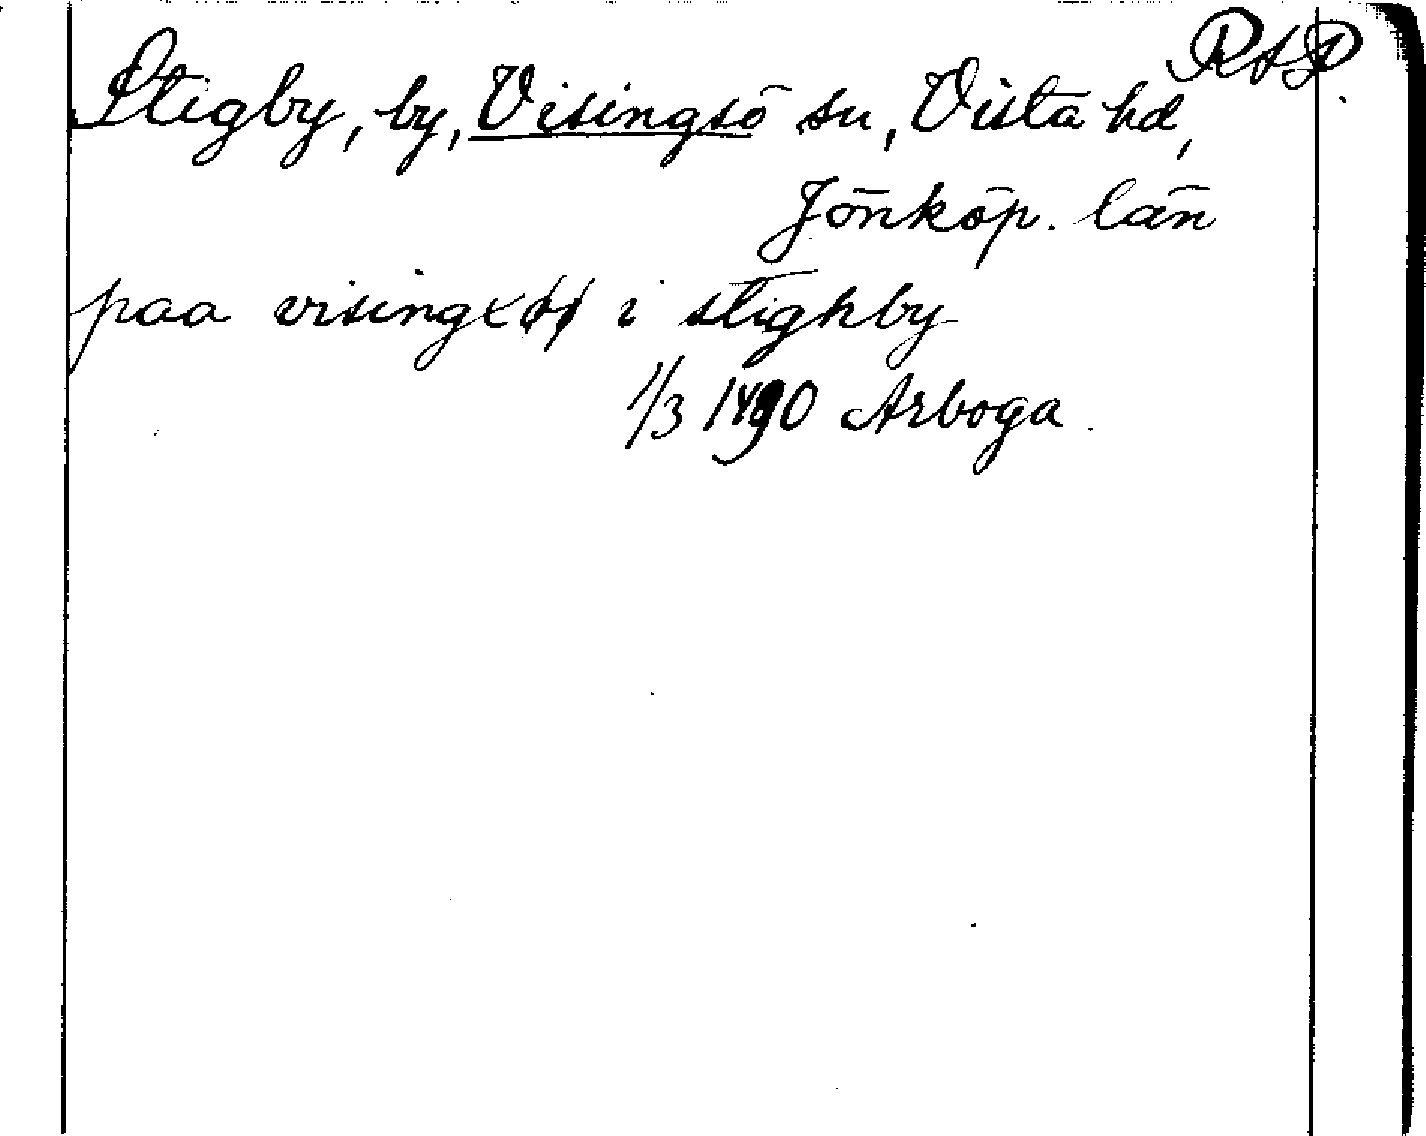 RAP.
Stigby, by, Visingsö sn, Vista hd,
Jönköp. län
paa visingxø i stighby
1/3 1490 Arboga.